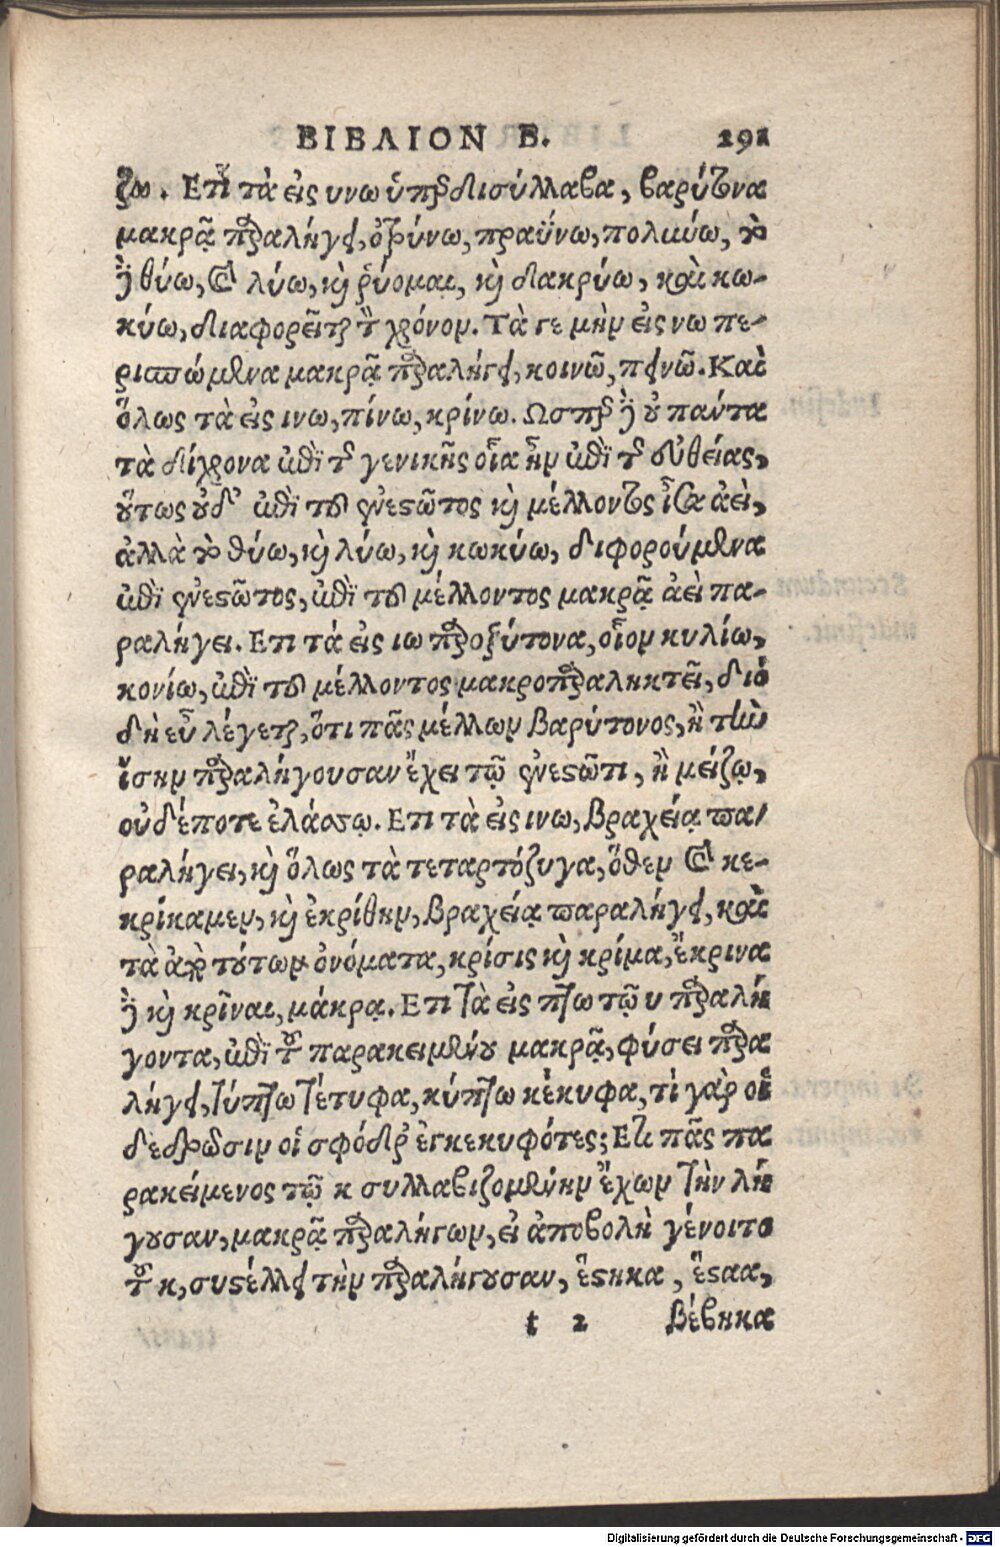 ΒΙΒΛΙΟΝ Β. 291
ζω. Ετι τὰ εἰς υνω ὑπὲρ δισύλλαβα, βαρύτονα
μακρᾷ παραλήγει, ὀτρύνω, πραΰνω, πολυύω, τὸ
δὲ θύω, καὶ λύω, καὶ ῥύομαι, καὶ δακρύω, καὶ κω-
κύω, διαφορεῖται τὸν χρόνον. Τὰ γε μὴν εἰς νω πε-
ρισπώμενα μακρᾷ παραλήγει, κοινῶ, πεινῶ. Καὶ
ὅλως τὰ εἰς ινω, πίνω, κρίνω. Ωσπερ δὲ οὐ πάντα
τὰ δίχρονα ἐπὶ τῆς γενικῆς οἷα ἦν ἐπὶ τῆς εὐθείας,
οὕτως οὐδ' ἐπὶ τοῦ ἐνεστῶτος καὶ μέλλοντος ἶσα ἀεὶ,
ἀλλὰ τὸ θύω, καὶ λύω, καὶ κωκύω, διφορούμενα
ἐπὶ ἐνεστῶτος, ἐπὶ τοῦ μέλλοντος μακρᾷ ἀεὶ πα-
ραλήγει. Ετι τά εἰς ιω παροξύτονα, οἷον κυλίω,
κονίω, ἐπὶ τοῦ μέλλοντος μακροπαραληκτεῖ, διό
δὴ εὖ λέγεται, ὅτι πᾶς μέλλων βαρύτονος, ἢ τὴν
ἴσην παραλήγουσαν ἔχει τῷ ἐνεστῶτι, ἢ μείζω,
οὐδέποτε ἐλάσσω. Ετι τὰ εἰς ινω, βραχείᾳ πα/
ραλήγει, καὶ ὅλως τὰ τεταρτόζυγα, ὅθεν καὶ κε-
κρίκαμεν, καὶ ἐκρίθην, βραχείᾳ παραλήγει, καὶ
τὰ ἀπὸ τούτων ὀνόματα, κρίσις καὶ κρίμα, ἔκρινα
δὲ καὶ κρῖναι, μάκρᾳ. Ετι τὰ εἰς πτω τῷ υ παραλή
γοντα, ἐπὶ τοῦ παρακειμένου μακρᾷ, φύσει παρα
λήγει, τύπτω τέτυφα, κύπτω κέκυφα, τὶ γὰρ οἵ
δε δρῶσιν οἱ σφόδρ' ἐγκεκυφότες; Ετι πᾶς πα
ρακείμενος τῷ κ συλλαβιζομένην ἔχων τὴν λή
γουσαν, μακρᾷ παραλήγων, εἰ ἀποβολὴ γένοιτο
τοῦ κ, συστέλλει τὴν παραλήγουσαν, ἕστηκα, ἕσταα,
t 2 βέβηκα
Digitalisierung gefördert durch die Deutsche Forschungsgemeinschaft - DFG